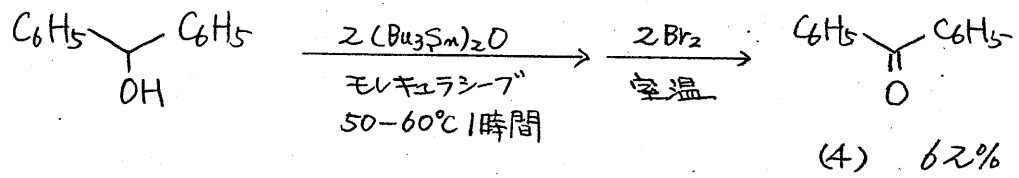 C6H5 C6H5
OH
2(Bu3Sn)2O
モレキュラシーブ
50-60℃ 1時間
2Br2
室温
C6H5 C6H5
O
(4) 62%